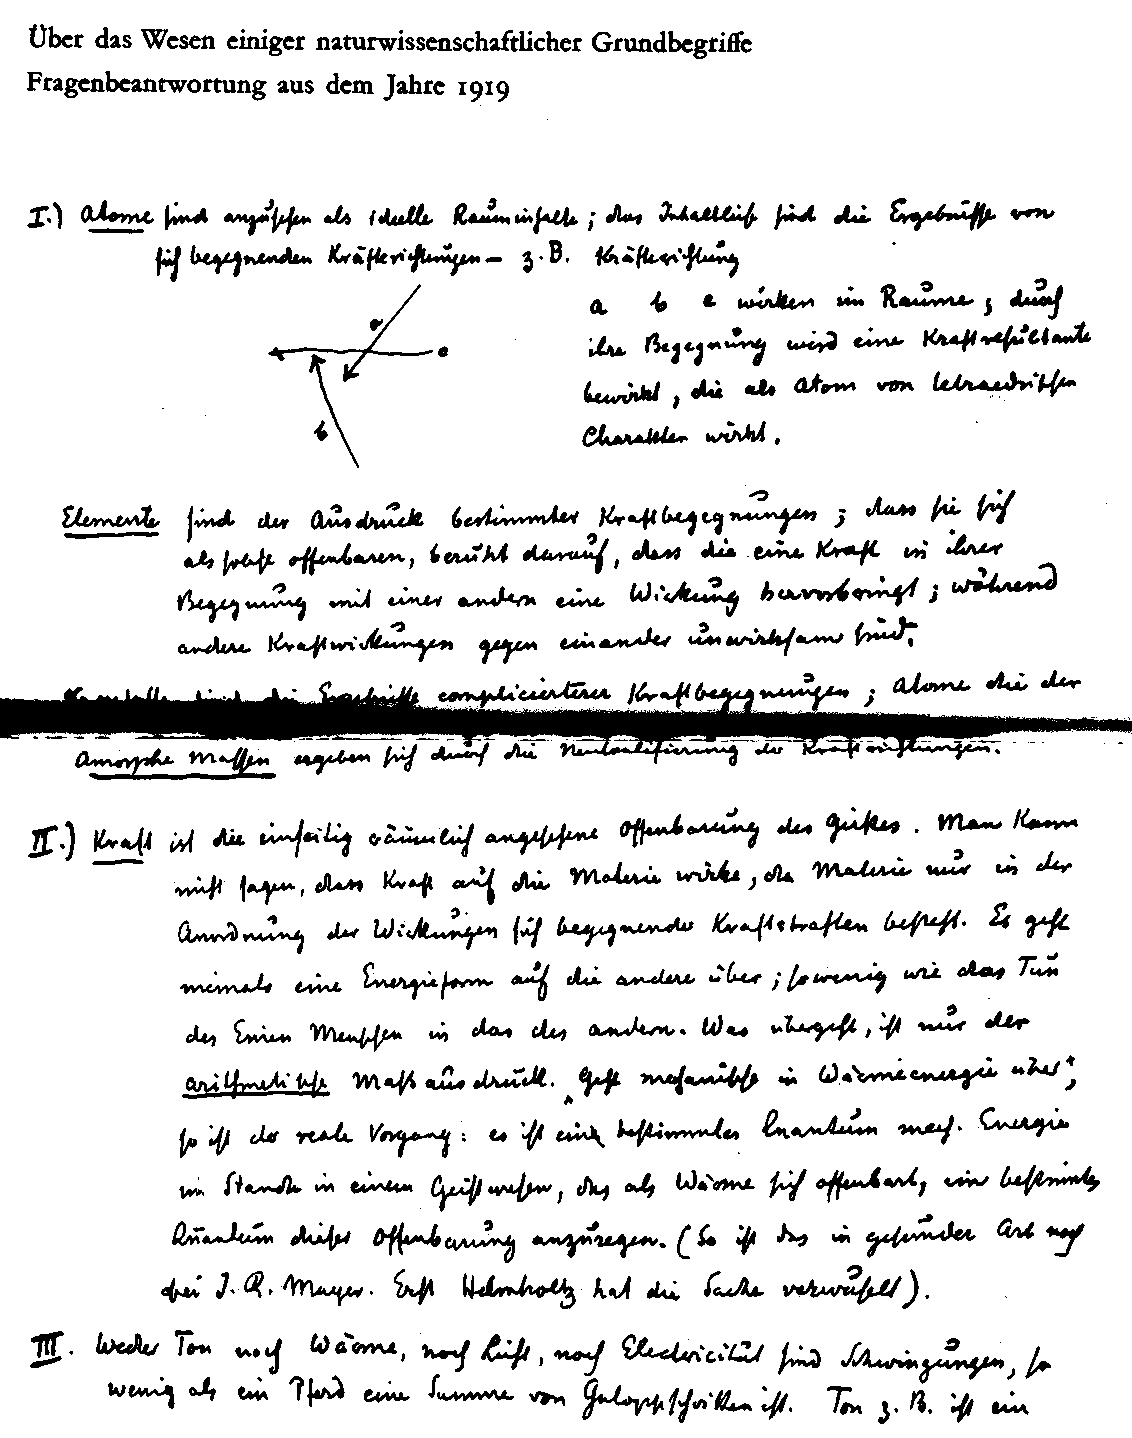 Über das Wesen einiger naturwissenschaftlicher Grundbegriffe
Fragenbeantwortung aus dem Jahre 1919
I.) Atome sind anzusehen als ideelle Rauminhalte; das Inhaltliche sind die Ergebnisse von
sich begegnenden Kräfterichtungen – z. B. Kräfterichtung
a b c wirken im Raume; durch
ihre Begegnung wird eine Kraftresultante
bewirkt, die als Atom von tetraedrischem
Charakter wirkt.
a
c
b
Elemente sind der Ausdruck bestimmter Kraftbegegnungen; dass sie sich
als solche offenbaren, beruht darauf, dass die eine Kraft in ihrer
Begegnung mit einer andern eine Wirkung hervorbringt; während
andere Kraftwirkungen gegen einander unwirksam sind.
Krystalle sind die Ergebnisse complicierterer Kraftbegegnungen; Atome die der
Amorphe Massen ergeben sich durch die Neutralisierung der Kraftrichtungen.
II.) Kraft ist die einseitig räumlich angesehene Offenbarung des Geistes. Man kann
nicht sagen, dass Kraft auf die Materie wirke, da Materie nur in der
Anordnung der Wirkungen sich begegnender Kraftstrahlen besteht. Es geht
niemals eine Energieform auf die andere über; so wenig wie das Tun
des Einen Menschen in das des andern. Was übergeht, ist nur der
arithmetische Maßausdruck. Geht mechanische in Wärmeenergie über,
so ist der reale Vorgang: es ist ein bestimmtes Quantum mech. Energie
im Stande in einem Geistwesen, das als Wärme sich offenbart, ein bestimmtes
Quantum dieser Offenbarung anzuregen. (So ist das in gesunder Art noch
bei J. R. Mayer. Erst Helmholtz hat die Sache verwuselt).
III. Weder Ton noch Wärme, noch Licht, noch Electricität sind Schwingungen, so
wenig als ein Pferd eine Summe von Galoppschritten ist. Ton z. B. ist ein